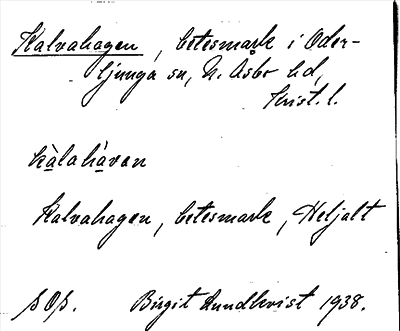 Kalvahagen, betesmark i Oder-
ljunga sn, N. Åsbo hd,
Krist. l.
kàlahàvan
Kalvahagen, betesmark, Heljalt
sOs. Birgit Lundkvist 1938.